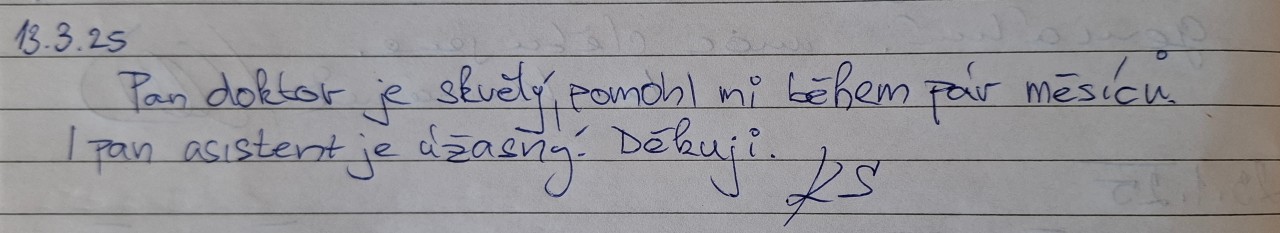 13.3.25
Pan doktor je skvělý, pomohl mi během pár měsíců.
I pan asistent je úžasný. Děkuji.
KS